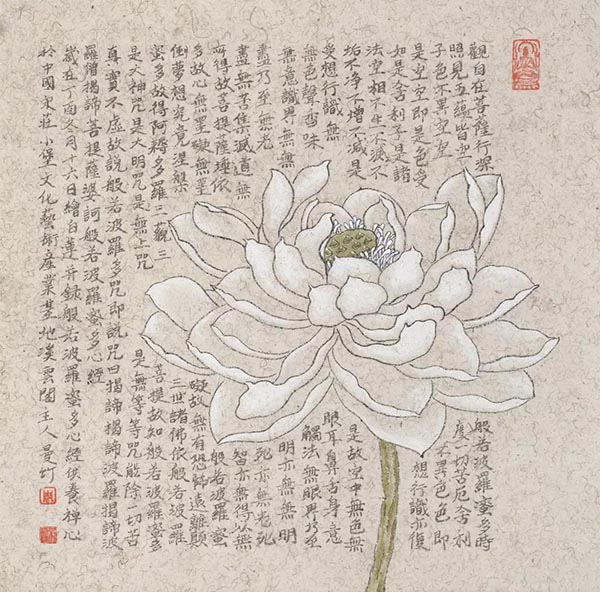 觀自在菩薩行深般若波羅蜜多時
照見五蘊皆空度一切苦厄舍利
子色不異空空不異色色即
是空空即是色受想行識亦復
如是舍利子是諸
法空相不生不滅不
垢不净不增不減是
是故空中色無
受想行識無眼耳鼻舌身意
無色聲香味觸法無眼界乃至
無意識界無無明亦無無明
盡乃至無老死亦無老死
盡無苦集滅道無智亦無得以無
所得故菩提薩埵依般若波羅蜜
多故心無罣礙無罣礙故無有恐怖遠離顛
倒夢想究竟涅槃三世諸佛依般若波羅
蜜多故得阿耨多羅三藐三菩提故知般若波羅蜜多
是大神咒是大明咒是無上咒是無等等咒能除一切苦
真實不虛故說般若波羅多咒即說咒曰揭諦揭諦波羅揭諦波
羅僧揭諦菩提薩婆訶般若波羅蜜多心經
歲在丁酉冬月十六日繪白蓮并録般若波羅蜜多心經供養禪心
於中國宋莊小堡文化藝術産業基地溪雲閣主人曼竹